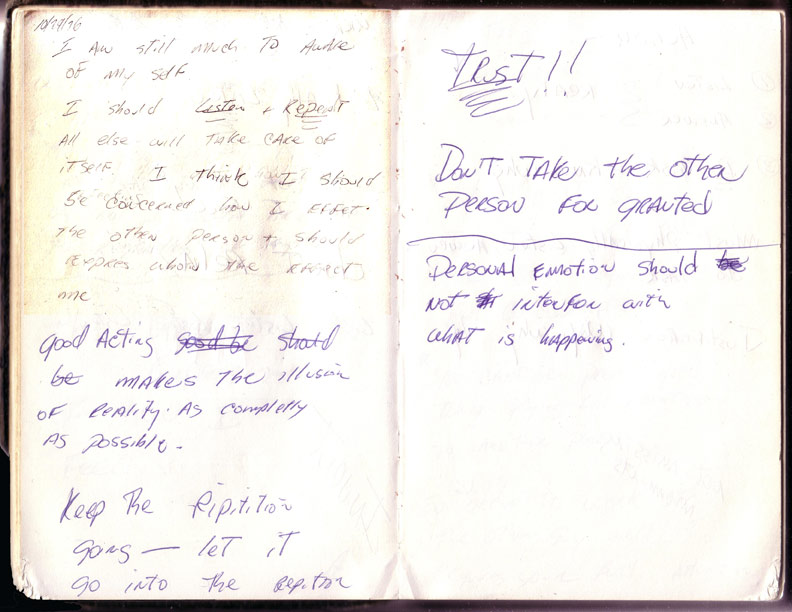 I Am still much To Aware
OF my self
I should Listen + Repeat
All else will TAKE CARE OF
itself. I think I should
be concerned how I EFFET
the other person + should
me
Good Acting good be should
be makes the illusion
OF Reality. As completly
As possible.
Keep The Ripitition
going — let it
go into the repition
TRUST!!
Don't TAke the other
Person For granted
Personal Emotion should be
not interfor with
what is happening.